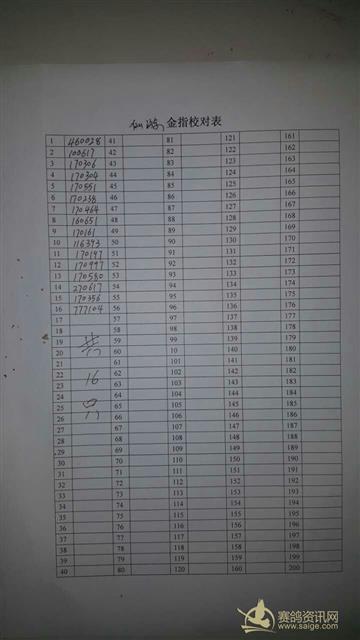 仙游 金指校对表
1 460028 41 81 121 161
2 100617 42 82 122 162
3 170306 43 83 123 163
4 170304 44 84 124 164
5 170551 45 85 125 165
6 170238 46 86 126 166
7 170464 47 87 127 167
8 160651 48 88 128 168
9 170161 49 89 129 169
10 116393 50 90 130 170
11 170197 51 91 131 171
12 170997 52 92 132 172
13 170580 53 93 133 173
14 270617 54 94 134 174
15 170356 55 95 135 175
16 777104 56 96 136 176
17 57 97 137 177
18 58 98 138 178
19 59 99 139 179
20 共 60 10 140 180
21 61 101 141 181
22 16 62 102 142 182
23 63 103 143 183
24 64 104 144 184
25 只 65 105 145 185
26 66 106 146 186
27 67 107 147 187
28 68 108 148 188
29 69 109 149 189
30 70 110 150 190
31 71 111 151 191
32 72 112 152 192
33 73 113 153 193
34 74 114 154 194
35 75 115 155 195
36 76 116 156 196
37 77 117 157 197
38 78 118 158 198
39 79 119 159 199
40 80 120 160 200
赛鸽资讯网
www.saige.com